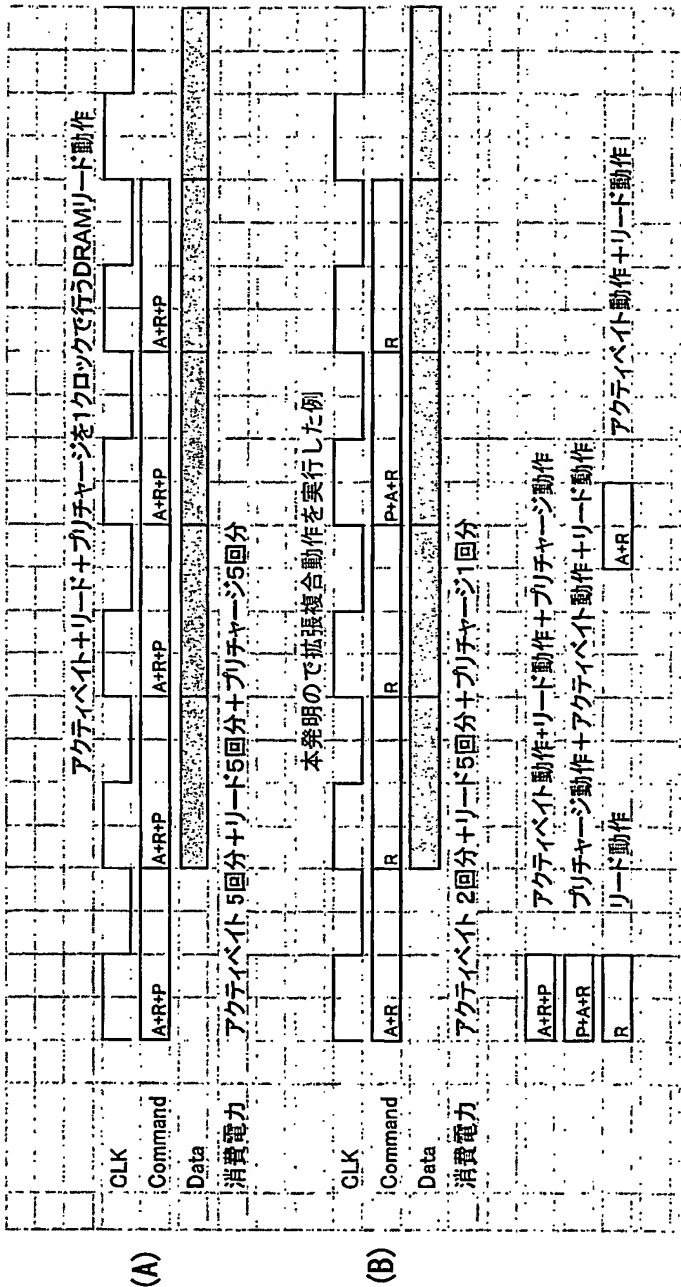 アクティベイト+リード+プリチャージを1クロックで行うDRAMリード動作
(A)
CLK
Command A+R+P A+R+P A+R+P A+R+P A+R+P
Data
消費電力 アクティベイト 5回分+リード5回分+プリチャージ5回分
本発明ので拡張複合動作を実行した例
(B)
CLK
Command A+R R R P+A+R R
Data
消費電力 アクティベイト 2回分+リード5回分+プリチャージ1回分
A+R+P アクティベイト動作+リード動作+プリチャージ動作
P+A+R プリチャージ動作+アクティベイト動作+リード動作
R リード動作 A+R アクティベイト動作+リード動作